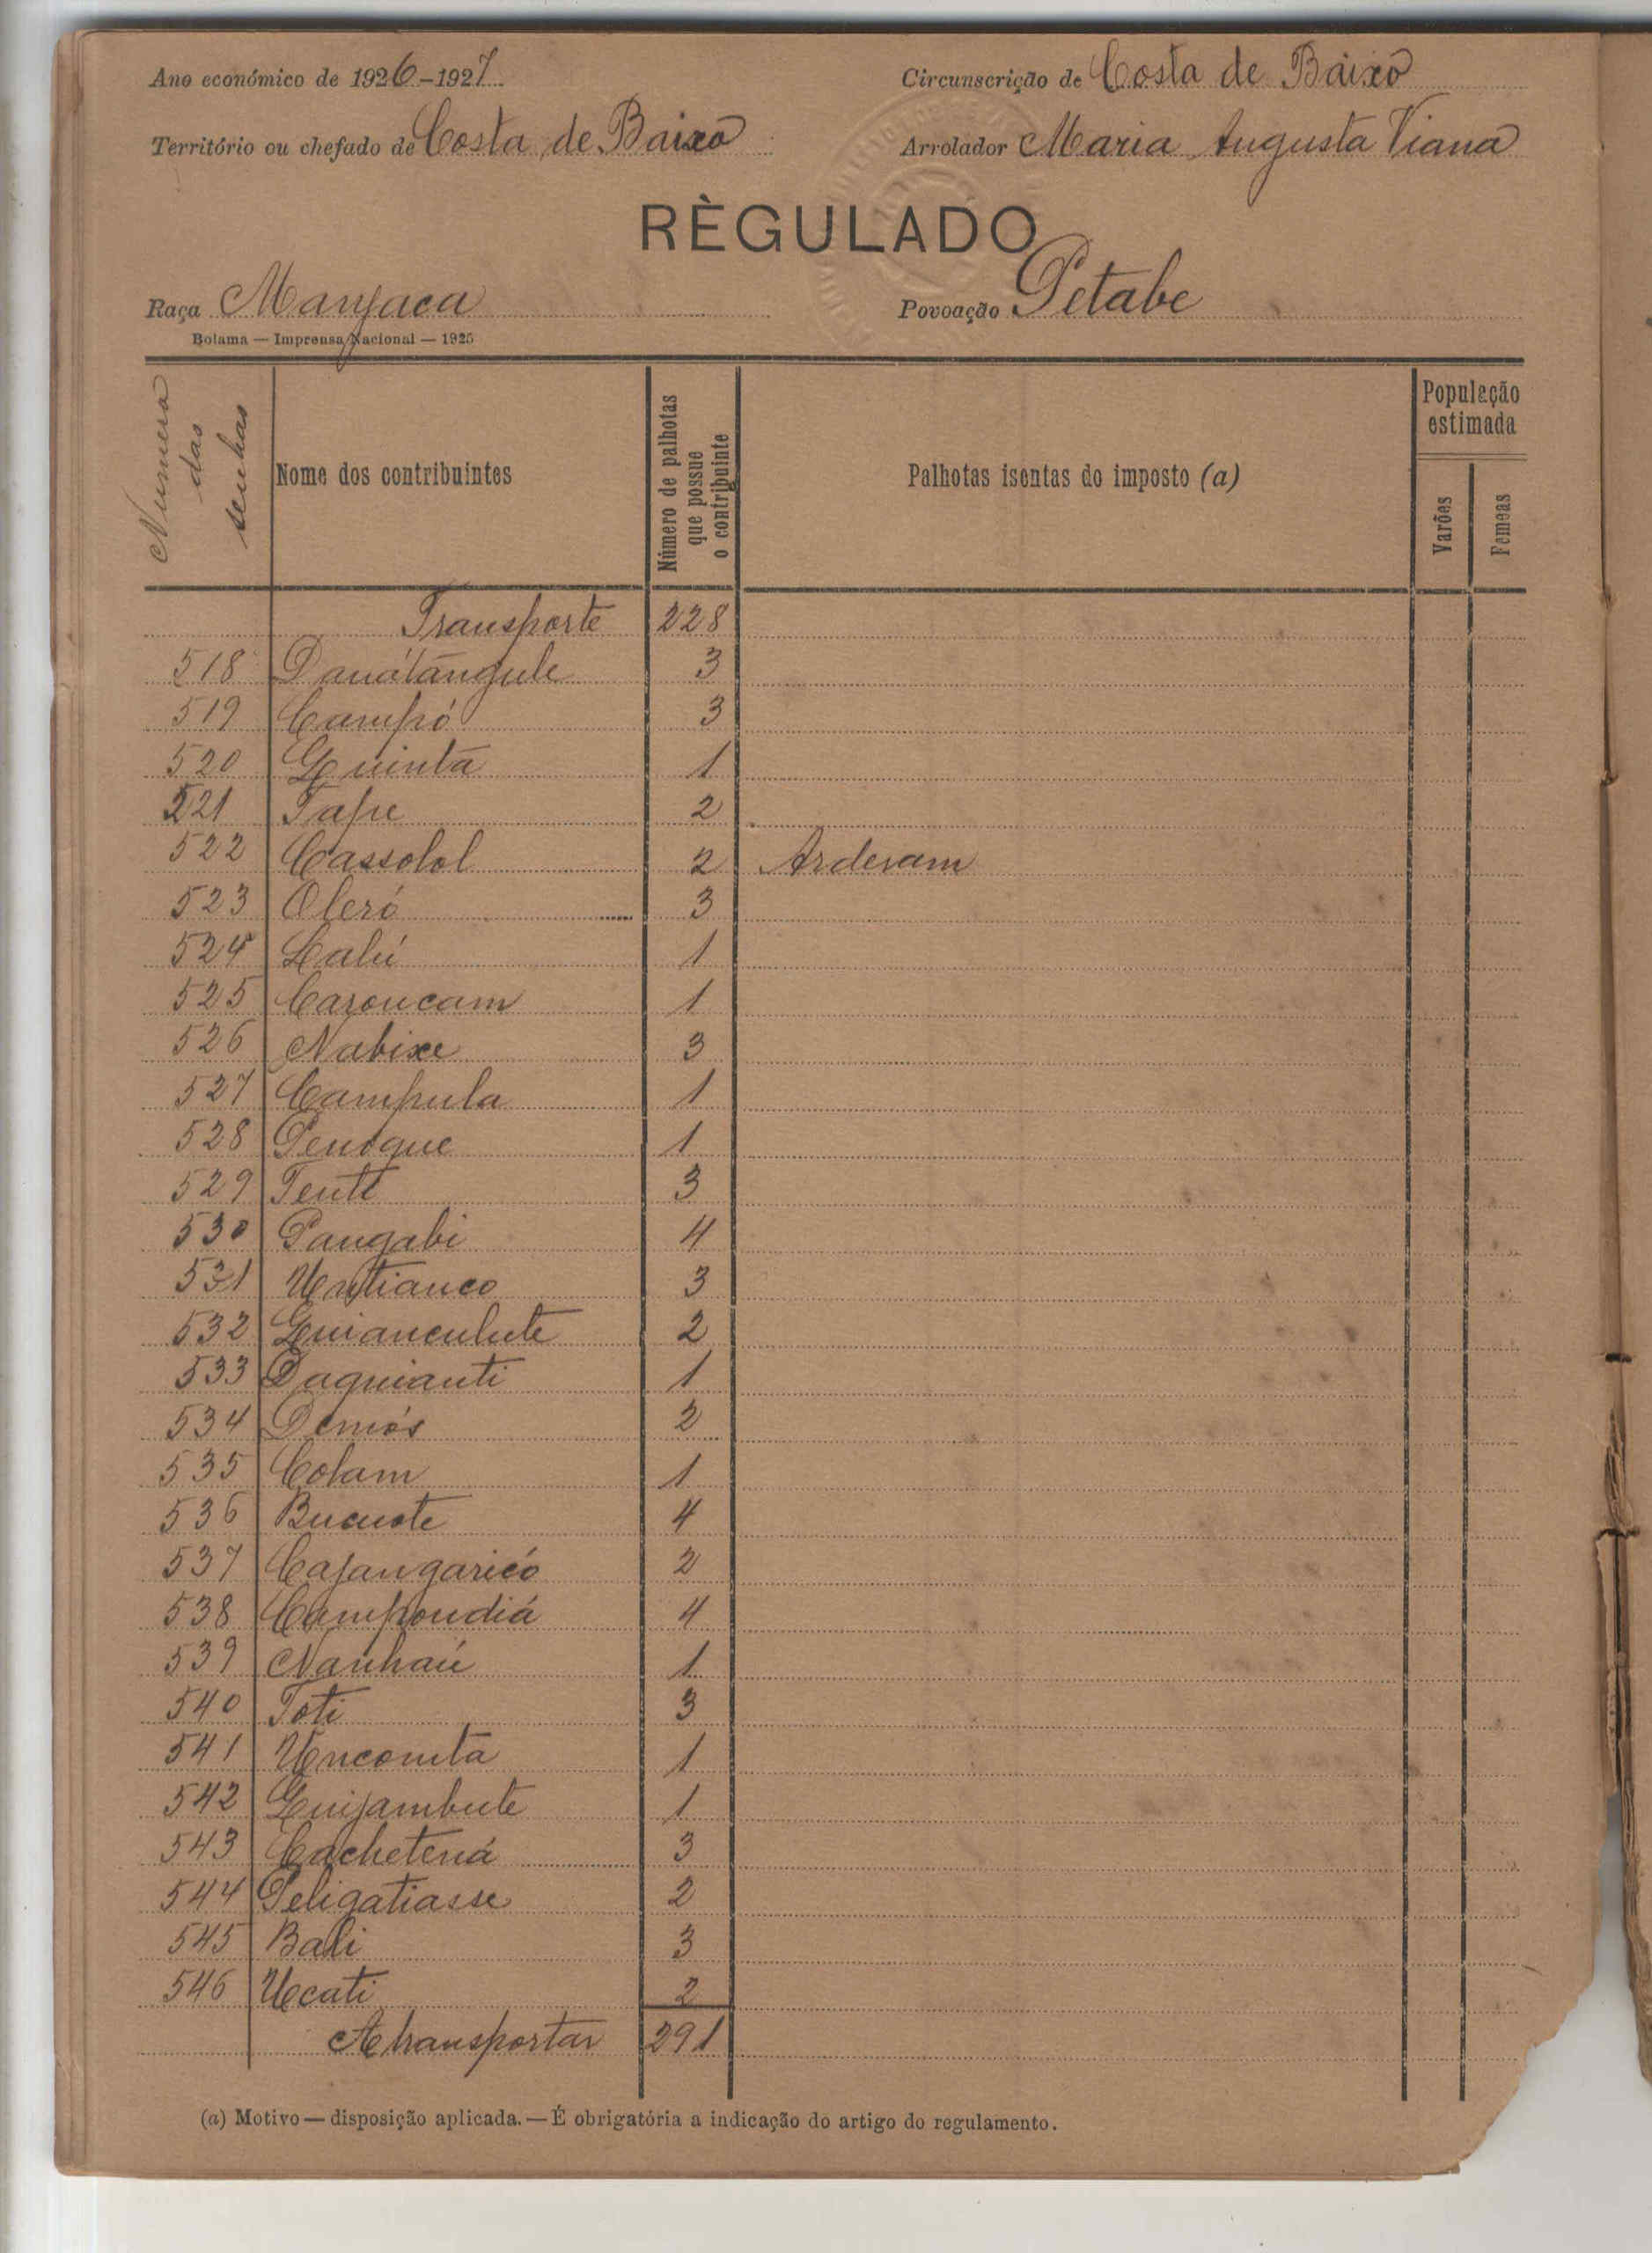 Ano económico de 1926-1927
Circunscrição de Costa de Baixo
Território ou chefado de Costa de Baixo
Arrolador Maria Augusta Viana
RÈGULADO
Raça Manjaca
Povoação Petabe
Bolama — Imprensa Nacional — 1925
Numero das senhas
Nome dos contribuintes
Número de palhotas que possue o contribuinte
Palhotas isentas do imposto (a)
População estimada
Varões
Femeas
Transporte 228
518 Danátángule 3
519 Campó 3
520 Quinta 1
521 Tape 2
522 Cassolol 2 Arderam
523 Oleró 3
524 Lalú 1
525 Caroucam 1
526 Nabixe 3
527 Campula 1
528 Penoque 1
529 Tente 3
530 Pangabi 4
531 Untianco 3
532 Quianculute 2
533 Daquianti 1
534 Demós 2
535 Colam 1
536 Bucuote 4
537 Cajangaricó 2
538 Campondiá 4
539 Nanhaú 1
540 Toti 3
541 Uncomta 1
542 Quijambute 1
543 Cachetená 3
544 Peligatiasse 2
545 Bali 3
546 Ucati 2
A transportar 291
(a) Motivo — disposição aplicada. — É obrigatória a indicação do artigo do regulamento.